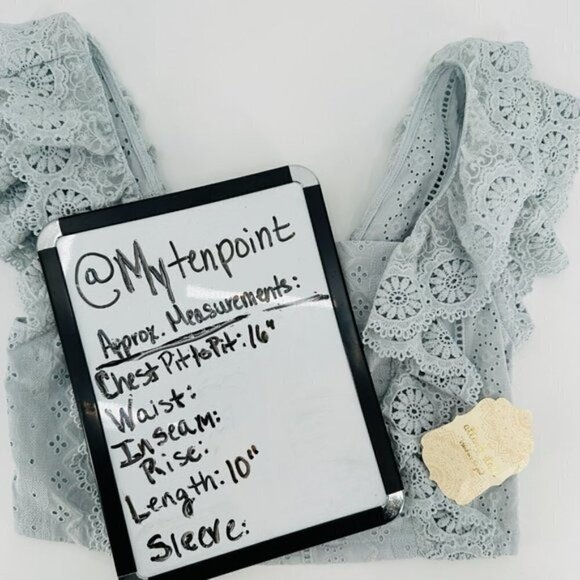 @Mytenpoint
Approx. Measurements:
Chest Pit to Pit: 16"
Waist:
Inseam:
Rise:
Length: 10"
Sleeve: